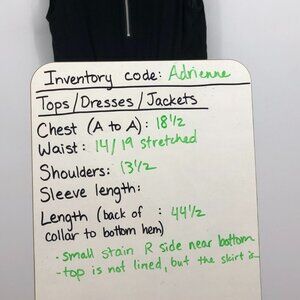 Inventory code: Adrienne
Tops/Dresses/Jackets
Chest (A to A): 18 1/2
Waist: 14/19 stretched
Shoulders: 13 1/2
Sleeve length:
Length (back of : 44 1/2
collar to bottom hem)
• small stain R side near bottom
- top is not lined, but the skirt is